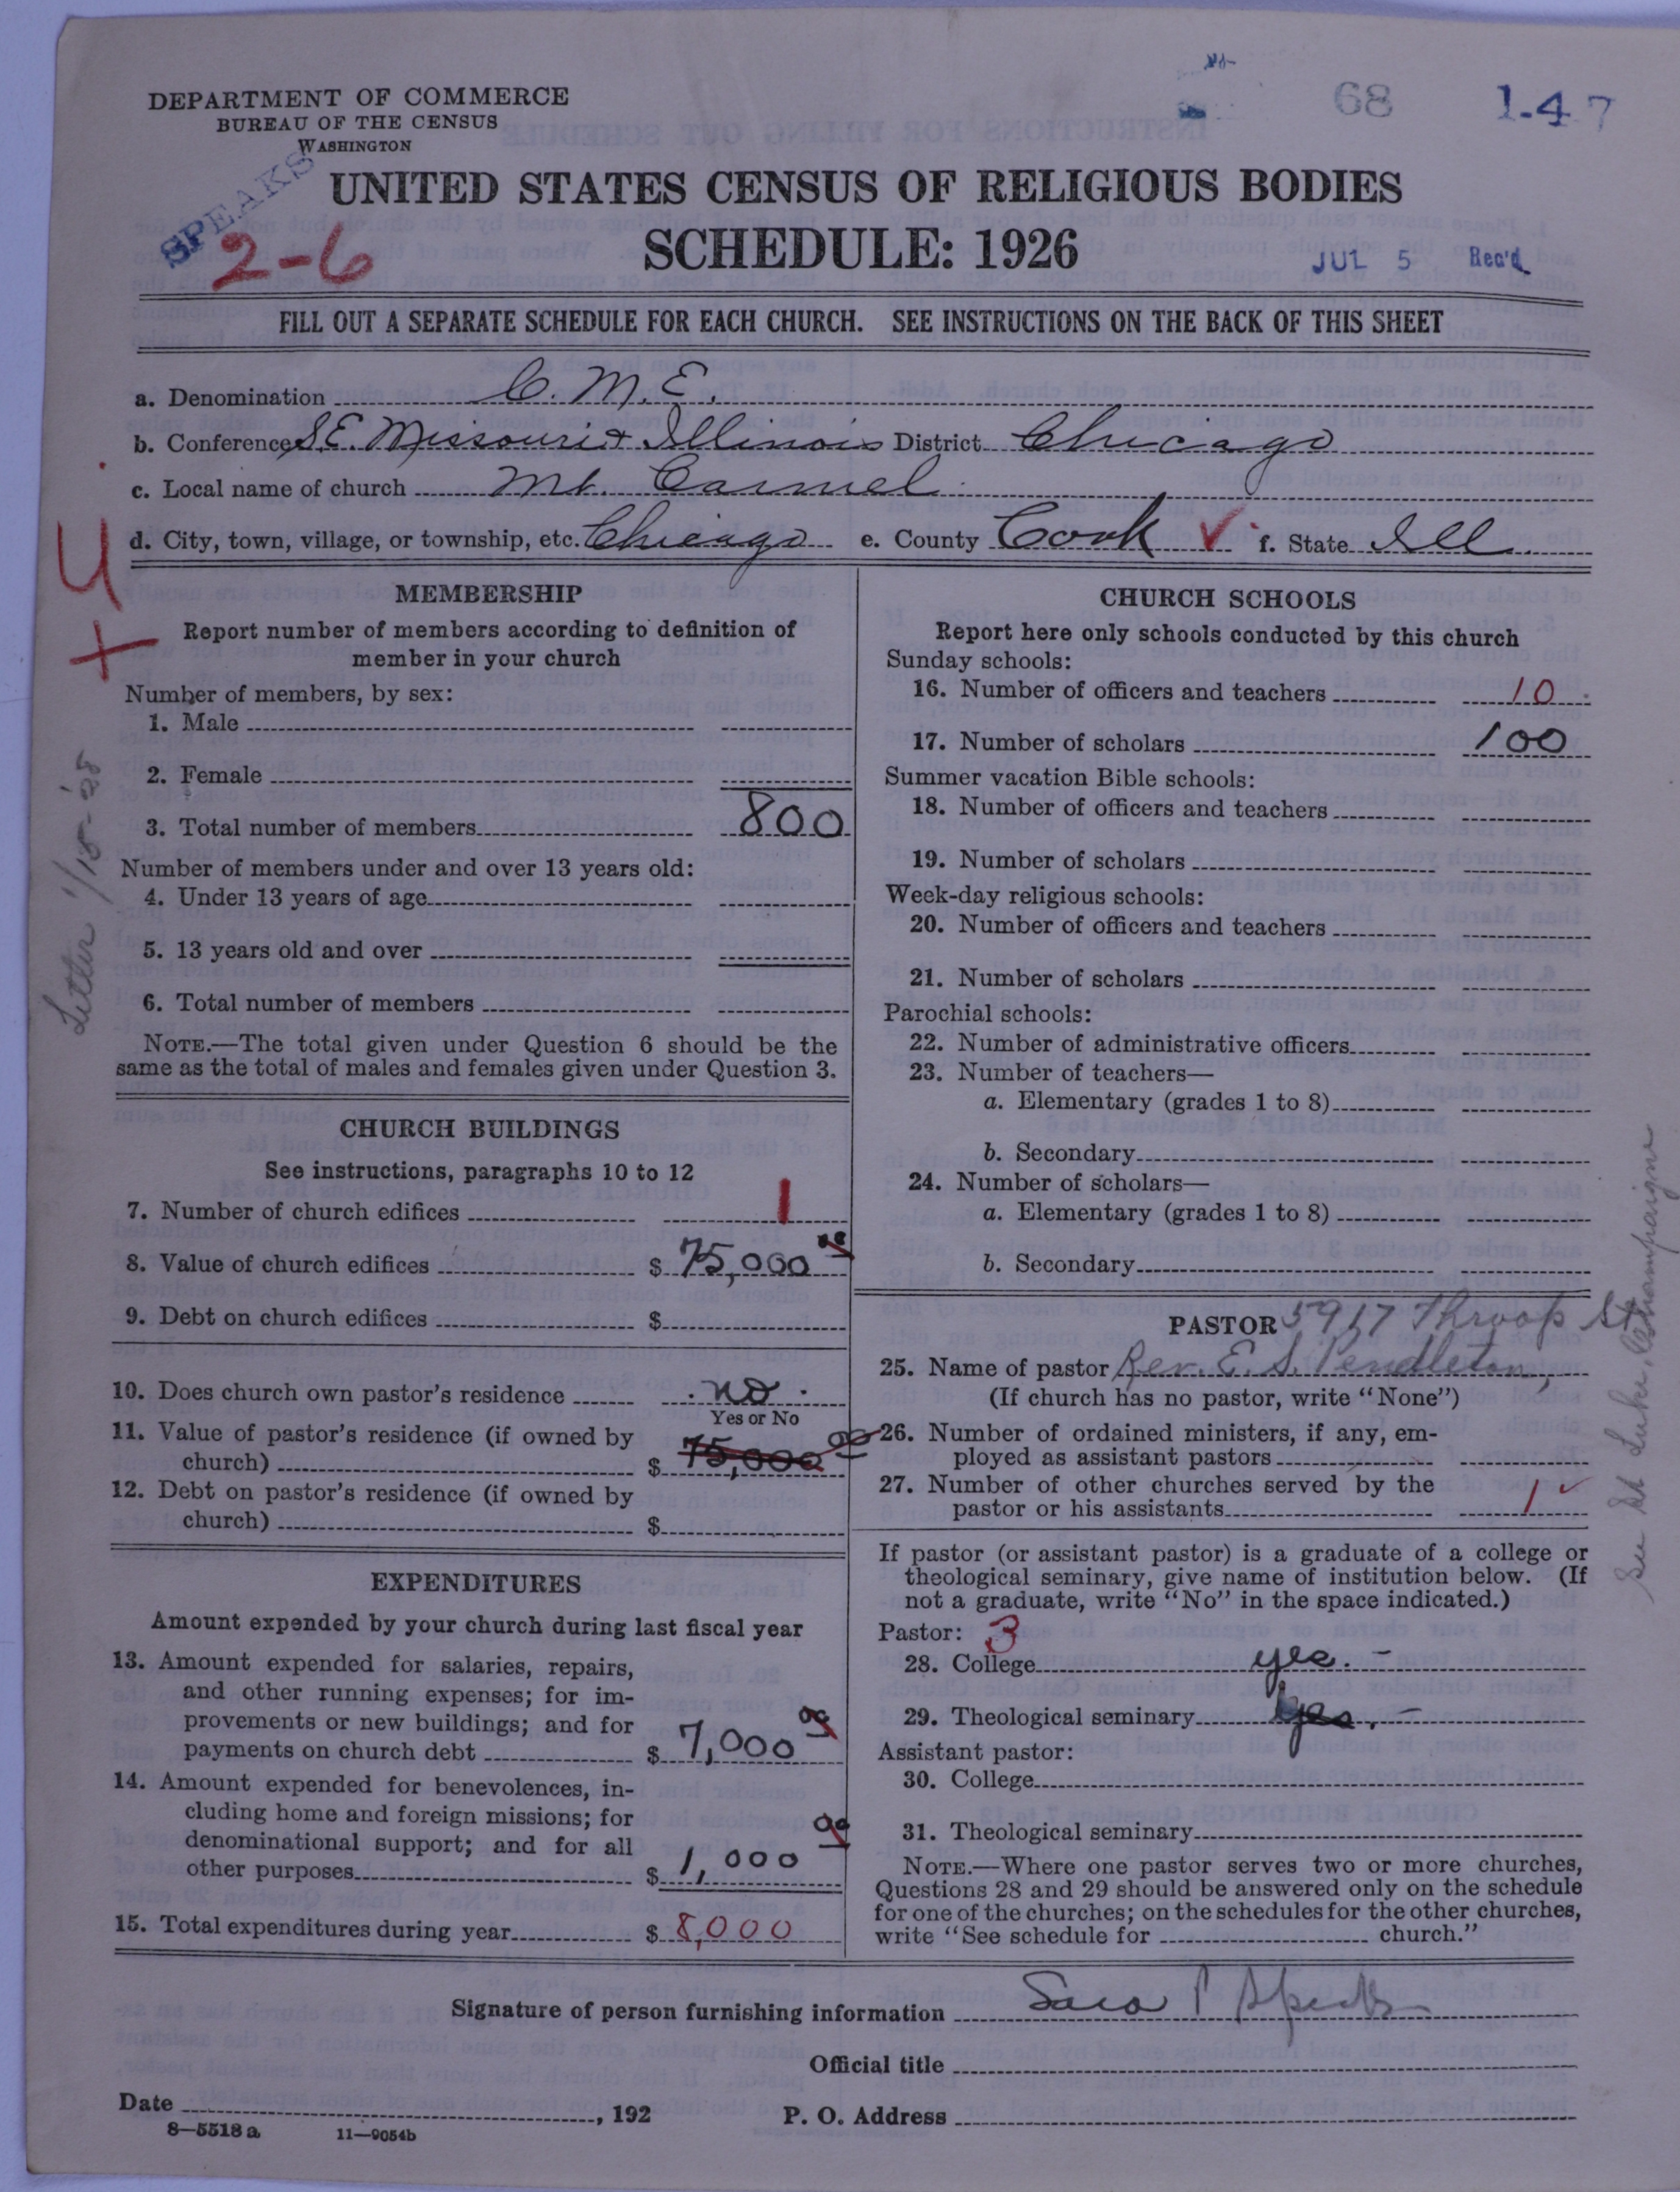 68 1-47
DEPARTMENT OF COMMERCE
BUREAU OF THE CENSUS
WASHINGTON
SPEAKS
2-6
UNITED STATES CENSUS OF RELIGIOUS BODIES
SCHEDULE: 1926
JUL 5 Rec'd
FILL OUT A SEPARATE SCHEDULE FOR EACH CHURCH. SEE INSTRUCTIONS ON THE BACK OF THIS SHEET
a. Denomination C. M. E.
b. Conference S.E. Missouri & Illinois District Chicago
c. Local name of church Mt. Carmel
d. City, town, village, or township, etc. Chicago e. County Cook ✓ f. State Ill.
4
+
Letter 1/18-'28
MEMBERSHIP
Report number of members according to definition of
member in your church
Number of members, by sex:
1. Male
2. Female
3. Total number of members 800
Number of members under and over 13 years old:
4. Under 13 years of age
5. 13 years old and over
6. Total number of members
NOTE.—The total given under Question 6 should be the
same as the total of males and females given under Question 3.
CHURCH BUILDINGS
See instructions, paragraphs 10 to 12
7. Number of church edifices 1
8. Value of church edifices $ 75,000 00
9. Debt on church edifices $
10. Does church own pastor's residence no.
Yes or No
11. Value of pastor's residence (if owned by
church) $ 75,000 00
12. Debt on pastor's residence (if owned by
church) $
EXPENDITURES
Amount expended by your church during last fiscal year
13. Amount expended for salaries, repairs,
and other running expenses; for im-
provements or new buildings; and for
payments on church debt $ 7,000 00
14. Amount expended for benevolences, in-
cluding home and foreign missions; for
denominational support; and for all
other purposes $ 1,000 00
15. Total expenditures during year $ 8,000
CHURCH SCHOOLS
Report here only schools conducted by this church
Sunday schools:
16. Number of officers and teachers 10
17. Number of scholars 100
Summer vacation Bible schools:
18. Number of officers and teachers
19. Number of scholars
Week-day religious schools:
20. Number of officers and teachers
21. Number of scholars
Parochial schools:
22. Number of administrative officers
23. Number of teachers—
a. Elementary (grades 1 to 8)
b. Secondary
24. Number of scholars—
a. Elementary (grades 1 to 8)
b. Secondary
PASTOR 5917 Throop St.
25. Name of pastor Rev. E. S. Pendleton,
(If church has no pastor, write "None")
26. Number of ordained ministers, if any, em-
ployed as assistant pastors
27. Number of other churches served by the
pastor or his assistants 1 ✓
See St Luke, Champaign
If pastor (or assistant pastor) is a graduate of a college or
theological seminary, give name of institution below. (If
not a graduate, write "No" in the space indicated.)
Pastor: 3
28. College yes. –
29. Theological seminary yes. –
Assistant pastor:
30. College
31. Theological seminary
NOTE.—Where one pastor serves two or more churches,
Questions 28 and 29 should be answered only on the schedule
for one of the churches; on the schedules for the other churches,
write "See schedule for church."
Signature of person furnishing information Sara P Speaks
Official title
Date , 192 P. O. Address
8—5518 a 11—9054b